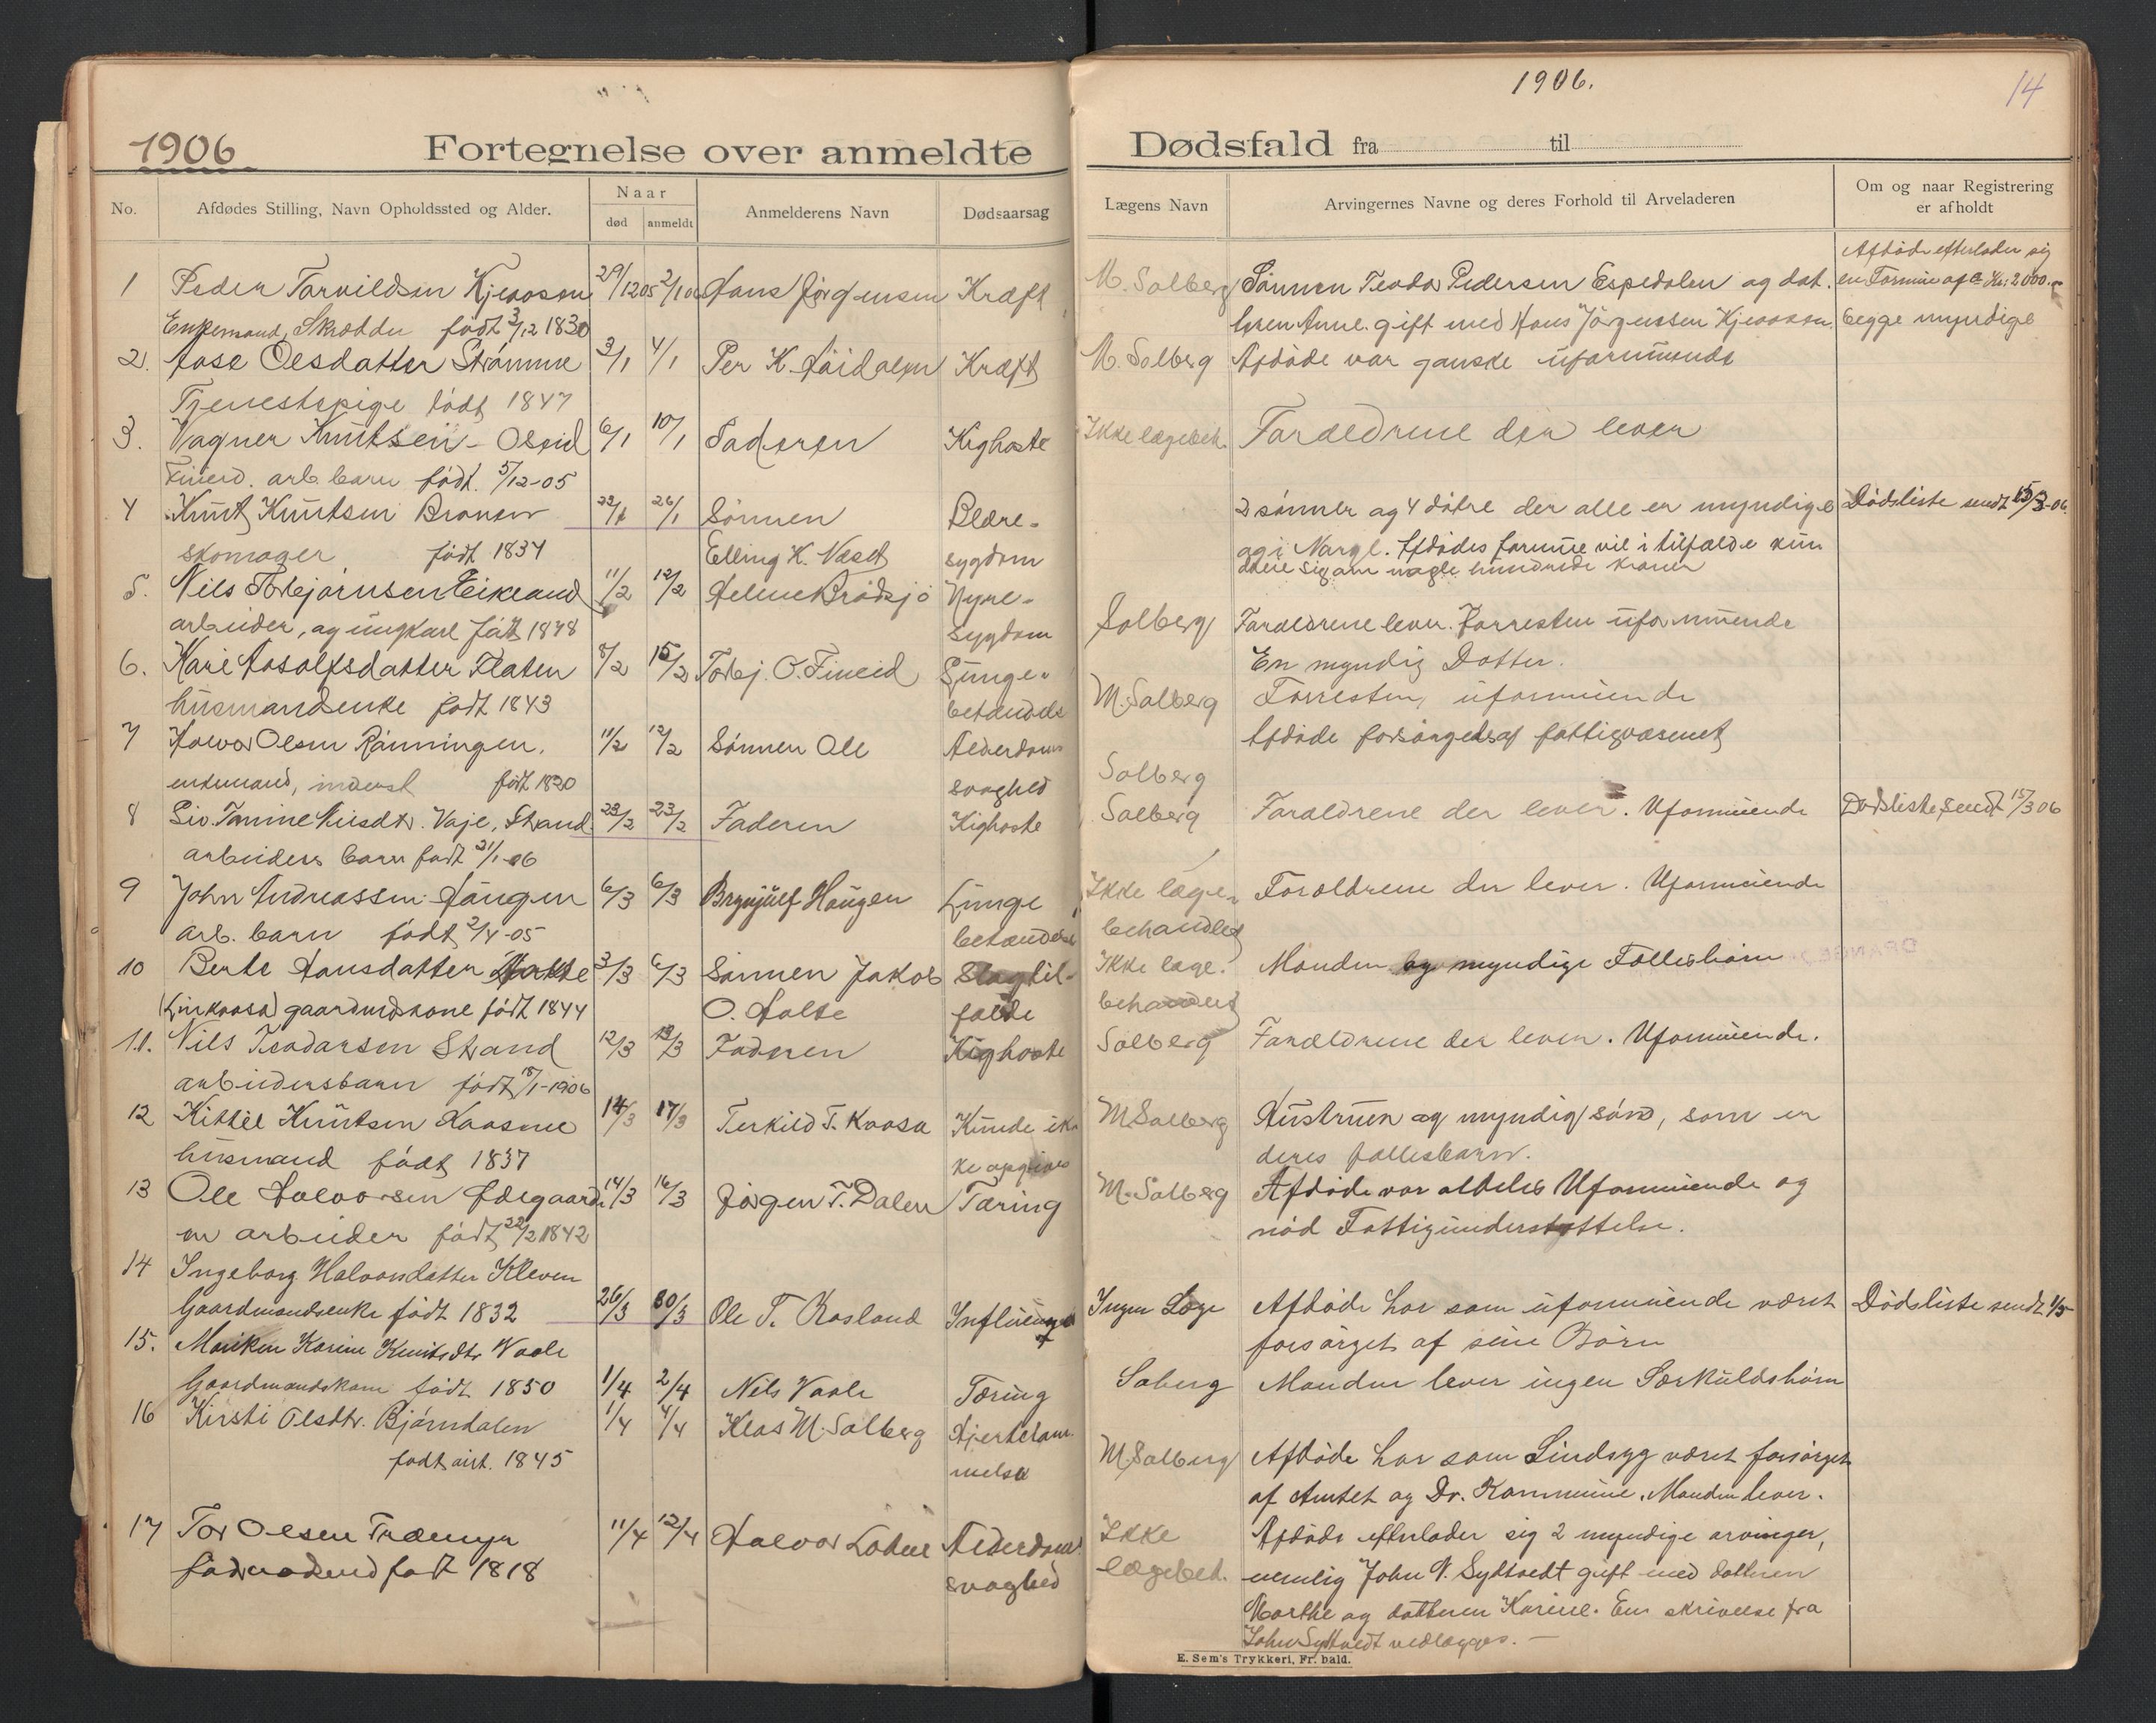 1906.
14
1906
Fortegnelse over anmeldte Dødsfald fra til
No.
Afdødes Stilling, Navn Opholdssted og Alder.
Naar
død
anmeldt
Anmelderens Navn
Dødsaarsag
Lægens Navn
Arvingernes Navne og deres Forhold til Arveladeren
Om og naar Registrering
er afholdt
1 Peder Tarvildsen 29/12 05 2/1 06 Hans Jørgensen Kræft M. Solberg Sønnen Teodor Pedersen Espedalen og dat.
Afdøde efterlader sig
en Formue af Kr. 2000.-
Enkemand, Skrædder født 3/12 1830 teren Anne gift med Hans Jørgensen begge myndige
2. Aase Olsdatter Strømme 3/1 4/1 Per K. Kræft M. Solberg Afdøde var ganske uformuende
Tjenestepige født 1847
3. Vagner Knutsen 6/1 10/1 Faderen Kighoste Ikke lægebeh. Forældrene der lever
Fineid. arb. barn født. 5/12-05
4 Knut Knutsen 22/1 26/1 Sønnen Blære- 2 sønner og 4 døtre der alle er myndige Dødsliste sendt 15/3-06.
skomager født 1834 Elling K. Næset sygdom og i Norge. Afdødes formue vil i tilfælde kun
dreie sig om nogle hundrede kroner
5. Nils Torbjørnsen Eikeland 11/2 12/2 Helene Brødsjø Nyre- Solberg Forældrene lever. Forresten uformuende
arbeider, og ungkarl født 1878 sygdom
6. Kari Aasolfsdatter Flaten 8/2 15/2 Torbj. O. Fineid Lunge- M. Solberg En myndig Datter.
husmandsenke født 1843 betændelse Forresten, uformuende
7 Halvor Olsen Rønningen. 11/2 12/2 Sønnen Ole Alderdoms Solberg Afdøde forsørgedes af fattigvæsenet
enkemand, inderst født 1820 svaghed
8 Siv. Tomine Nilsdtr. Vaje, Strand. 22/2 23/2 Faderen Kighoste Solberg Forældrene der lever. Uformuende Dødsliste sendt 15/3 06
arbeiders barn født 21/1-06
9 John Andreassen Haugen 6/3 6/3 Brynjulf Haugen Lunge Ikke læge- Forældrene der lever. Uformuende
arb. barn født 2/4-05 betændelse behandlet
10 Berte Hansdatter Holte 3/3 6/3 Sønnen Jakob Slagtil- Ikke læge- Manden og myndige Fællesbørn
gaardmdskone født 1844 O. Holte fælde behandlet
11. Nils Teodorsen Strand 12/3 13/3 Faderen Kighoste Solberg Forældrene der lever. Uformuende.
arbeidersbarn født 18/1-1906
12 Kittil Knutsen Kaasene 14/3 17/3 Terkild T. Kaasa Kunde ik- M Solberg Hustruen og myndig søn, som er
husmand født 1837 ke opgives deres fællesbarn.
13 Ole Halvorsen Ødegaard 14/3 16/3 Jørgen T. Dalen Tæring M. Solberg Afdøde var aldeles Uformuende og
en arbeider født 22/2 1842 nød Fattigunderstøttelse.
14 Ingeborg Halvorsdatter Kleven
Gaardmandsenke født 1832 26/3 30/3 Ole T. Rosland Influenza Ingen Læge Afdøde har som uformuende været Dødsliste sendt 1/5
forsørget af sine Børn
15. Maiken Karine Knutsdtr Vaale
Gaardmandskone født 1850 1/4 2/4 Nils Vaale Tæring Solberg Manden lever ingen Særkuldsbørn
16 Kirsti Olsdtr. Bjørndalen 1/4 4/4 Klas M. Solberg Hjertelam- M. Solberg Afdøde har som Sindsyg været forsørget
født 1845 melse af Amtet og Dr. Kommune. Manden lever.
17 Tor Olsen Træmyr 11/4 12/4 Halvor Lohne Alderdoms Ikke Afdøde efterlader sig 2 myndige arvinger,
født 1818 svaghed lægebeh. nemlig John N. Sydtvedt gift med datteren
Marthe og datteren Karine. En skrivelse fra
John Sydtvedt vedlægges. —
E. Sem's Trykkeri, Fr. hald.